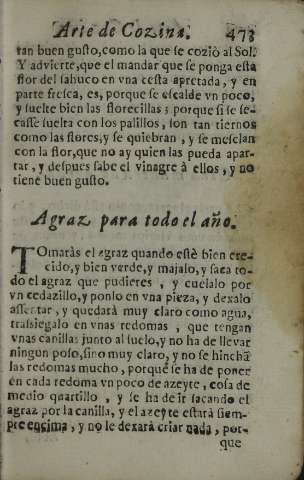 Arte de Cozina. 473
tan buen gusto, como la que se coziò al Sol.
Y advierte, que el mandar que se ponga esta
flor del sahuco en vna cesta apretada, y en
parte fresca, es, porque se escalde vn poco,
y suelte bien las florecillas; porque si se se-
casse suelta con los palillos, son tan tiernos
como las flores, y se quiebran, y se mesclan
con la flor, que no ay quien las pueda apar-
tar, y despues sabe el vinagre à ellos, y no
tiene buen gusto.
Agraz para todo el año.
TOmaràs el agraz quando estè bien cre-
cido, y bien verde, y majalo, y saca to-
do el agraz que pudieres, y cuelalo por
vn cedazillo, y ponlo en vna pieza, y dexalo
assentar, y quedarà muy claro como agua,
trasiegalo en vnas redomas, que tengan
vnas canillas junto al suelo, y no ha de llevar
ningun poso, sino muy claro, y no se hinchã
las redomas mucho, porque se ha de poner
en cada redoma vn poco de azeyte, cosa de
medio quartillo, y se ha de ir sacando el
agraz por la canilla, y el azeyte estarà siem-
pre encima, y no le dexarà criar nada, por-
que